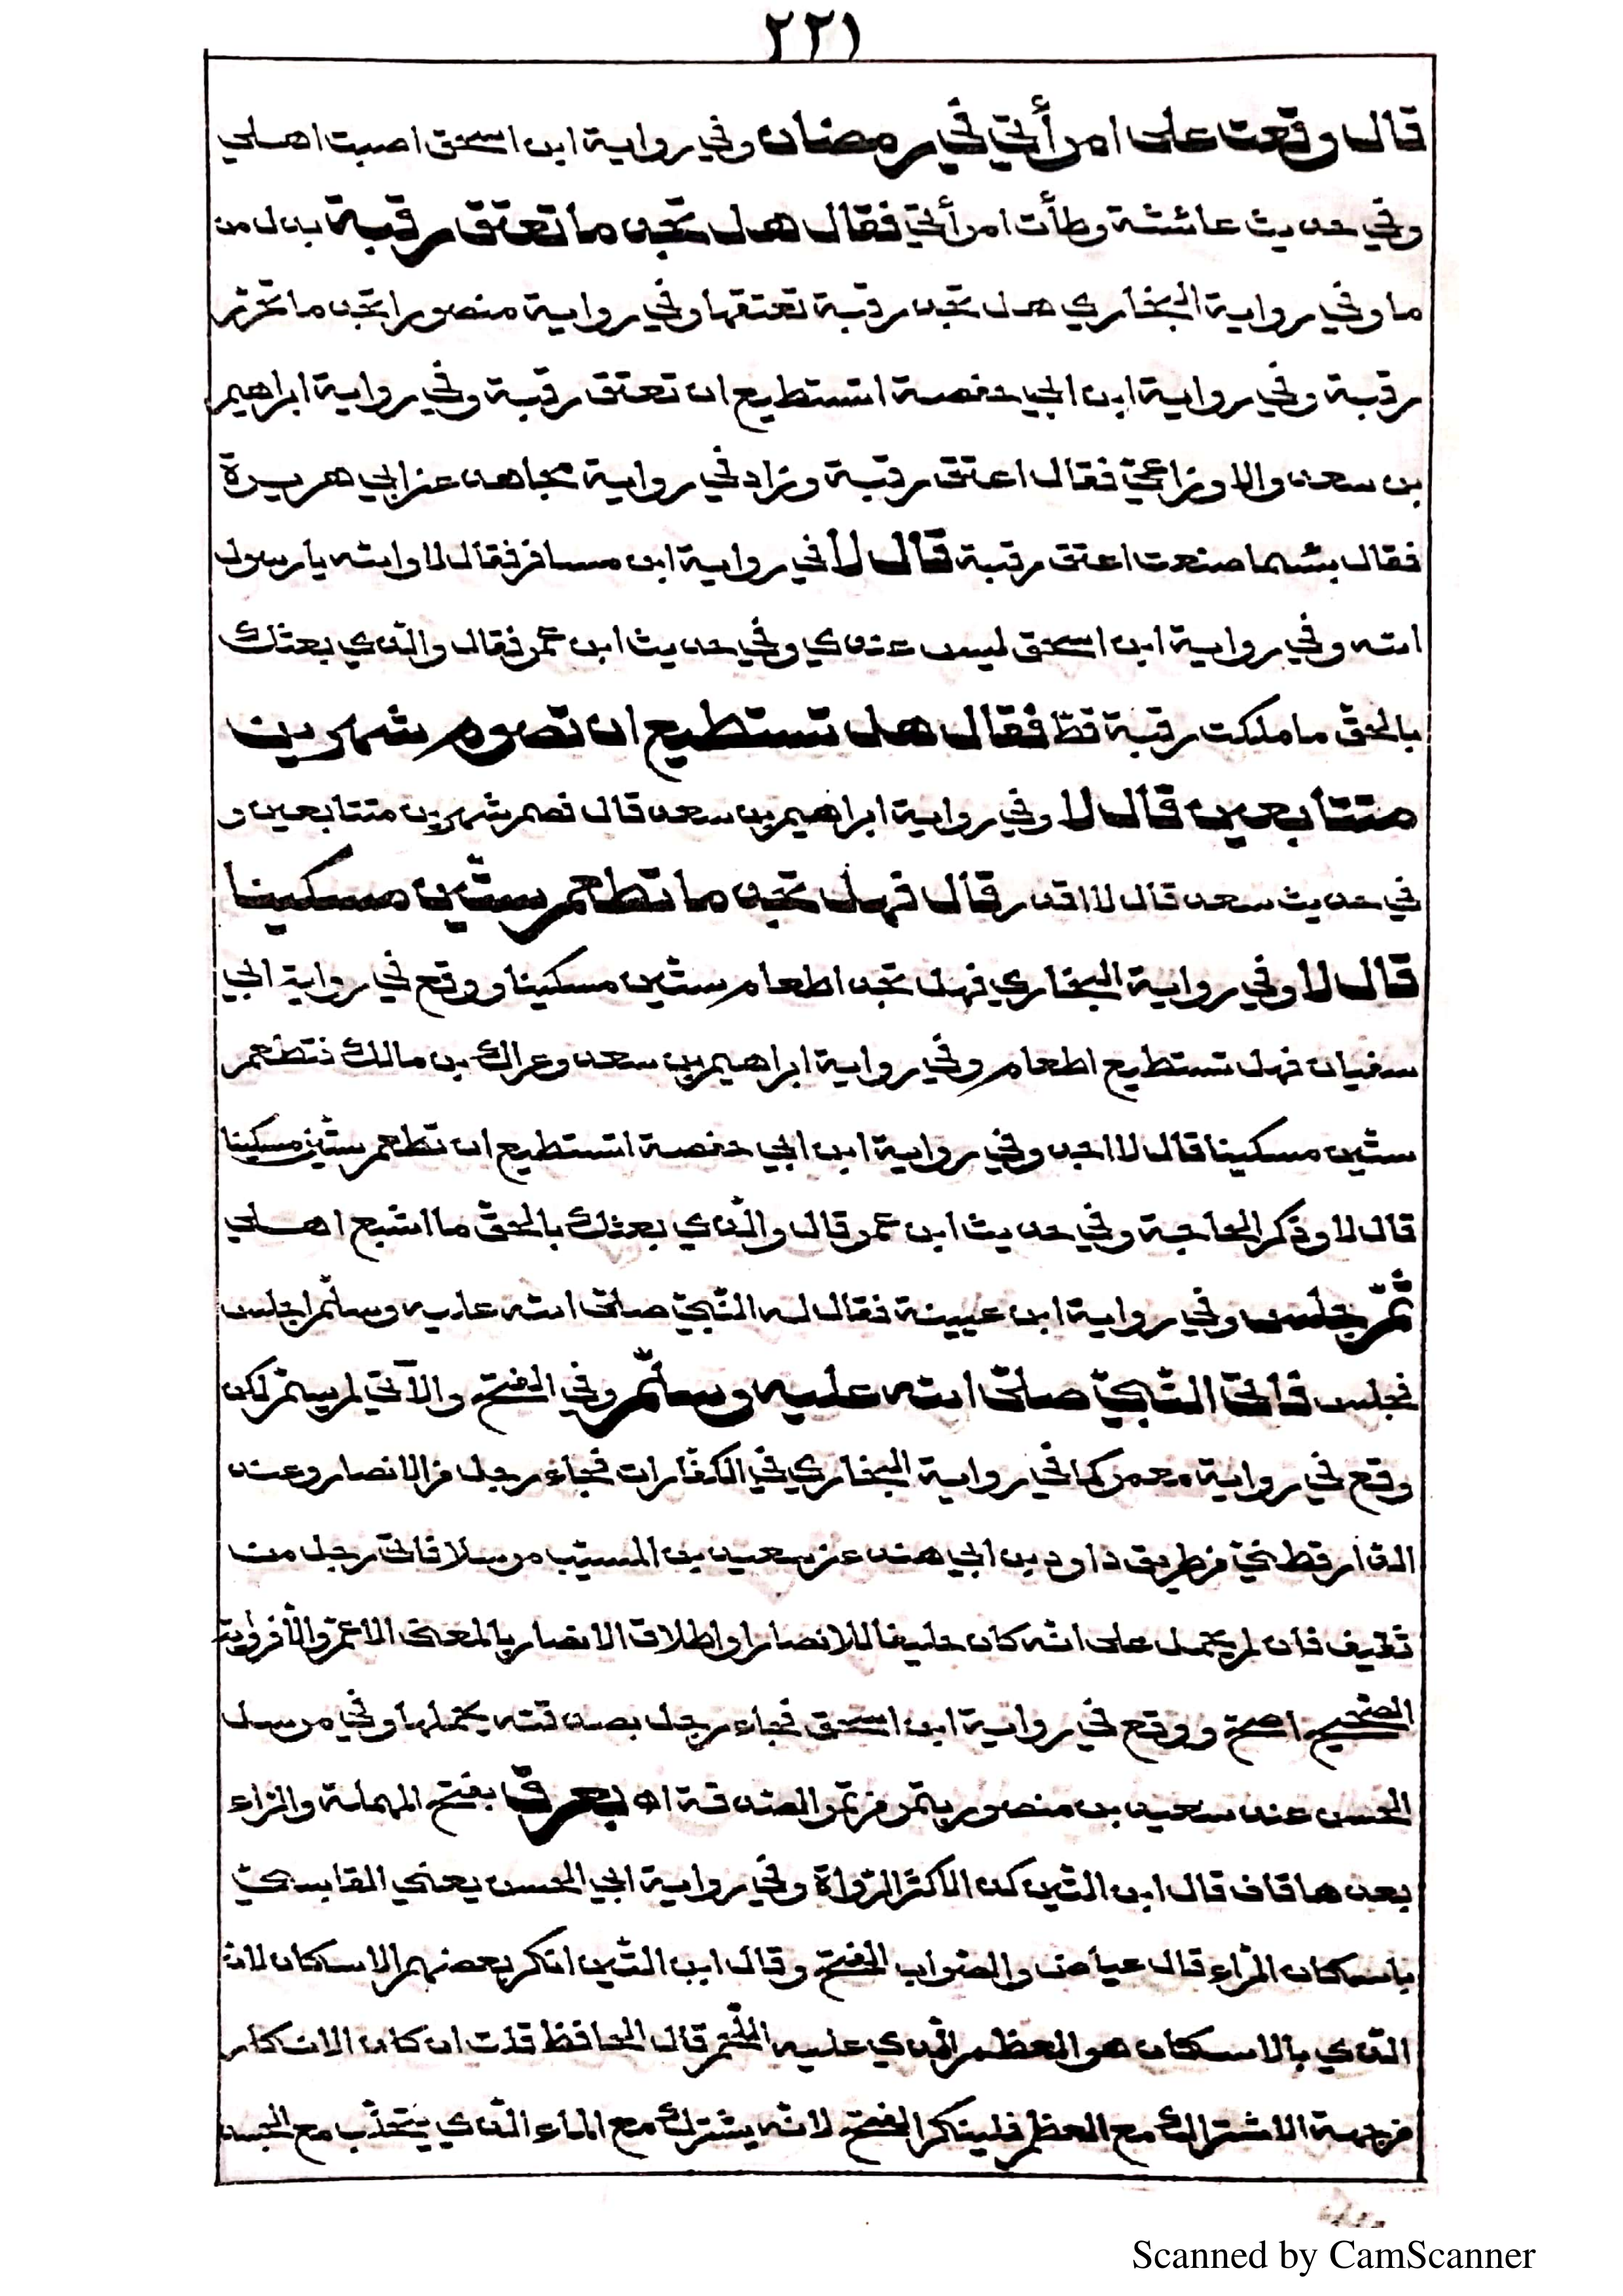 ٢٢١
قال وقعت على امرأتي في رمضان وفي رواية ابن اسحق اصبت اهلي
وفي حديث عائشة وطأت امرأتي فقال هل تجد ما تعتق رقبة بدل من
ما وفي رواية البخاري هل تجد رقبة تعتقها وفي رواية منصور اتجد ما تحرّر
رقبة وفي رواية ابن ابي حفصة اتستطيع ان تعتق رقبة وفي رواية ابراهيم
بن سعد والاوزاعيّ فقال اعتق رقبة وزاد في رواية مجاهد عن ابي هريرة
فقال بئسما صنعت اعتق رقبة قال لا في رواية ابن مسافر فقال لا والله يا رسول
الله وفي رواية ابن اسحق ليس عندي وفي حديث ابن عمر فقال والّذي بعثك
بالحقّ ما ملكت رقبة قطّ فقال هل تستطيع ان تصوم شهرين
متتابعين قال لا وفي رواية ابراهيم بن سعد قال فصم شهرين متتابعين و
في حديث سعد قال لا اقدر قال فهل تجد ما تطعم ستّين مسكينا
قال لا وفي رواية البخاري فهل تجد اطعام ستّين مسكينا ووقع في رواية ابي
سفيان فهل تستطيع اطعام وفي رواية ابراهيم بن سعد وعراك بن مالك فتطعم
ستّين مسكينا قال لا اجد وفي رواية ابن ابي حفصة اتستطيع ان تطعم ستّين مسكينا
قال لا وذكر الحاجة وفي حديث ابن عمر قال والّذي بعثك بالحقّ ما اشبع اهلي
ثمّ جلس وفي رواية ابن عيينة فقال له النّبيّ صلى الله عليه وسلّم اجلس
فجلس فاتى النّبيّ صلى الله عليه وسلّم وفي الفتح والآتي لم يسمّ لكن
وقع في رواية معمر كما في رواية البخاري في الكفّارات فجاء رجل من الانصار وعند
الدّارقطنيّ من طريق داود بن ابي هند عن سعيد بن المسيّب مرسلا فاتى رجل من
ثقيف فان لم يحمل على انّه كان حليفا للانصار او اطلاق الانصار بالمعنى الاعمّ والّا فرواية
الصّحيح اصحّ ووقع في رواية ابن اسحق فجاء رجل بصدقته يحملها وفي مرسل
الحسن عند سعيد بن منصور بتمر من تمر الصّدقة اه بعرق بفتح المهملة والرّاء
بعدها قاف قال ابن التّين كذا لاكثر الرّواة وفي رواية ابي الحسن يعني القابسيّ
باسكان الرّاء قال عياض والصّواب الفتح وقال ابن التّين انكر بعضهم الاسكان لانّ
الّذي بالاسكان هو العظم الّذي عليه اللّحم قال الحافظ قلت ان كان الانكار
من جهة الاشتراك مع العظم فلينكر الفتح لانّه يشترك مع الماء الّذي يتحلّب مع الجسد
Scanned by CamScanner